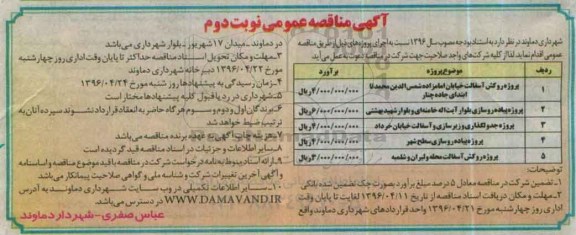 آگهی مناقصه عمومی نوبت دوم
شهرداری دماوند در نظر دارد به استناد بودجه مصوب سال ۱۳۹۶ نسبت به اجرای پروژه های ذیل از طریق مناقصه
عمومی اقدام نماید. لذا از کلیه شرکتهای واجد صلاحیت جهت شرکت در مناقصه دعوت به عمل می آید
ردیف موضوع پروژه برآورد
۱ پروژه روکش آسفالت خیابان امامزاده شمس الدین محمد تا ابتدای جاده چنار ۴/۰۰۰/۰۰۰/۰۰۰ ریال
۲ پروژه پیاده روسازی بلوار آیت اله خامنه ای و بلوار شهید بهشتی ۶/۰۰۰/۰۰۰/۰۰۰ ریال
۳ پروژه جدولگذاری و زیرسازی و آسفالت خیابان خرداد ۴/۰۰۰/۰۰۰/۰۰۰ ریال
۴ پروژه پیاده روسازی سطح شهر ۴/۰۰۰/۰۰۰/۰۰۰ ریال
۵ پروژه روکش آسفالت محله ولیران و شلمبه ۳/۰۰۰/۰۰۰/۰۰۰ ریال
توضیحات:
۱-تضمین شرکت در مناقصه معادل ۵ درصد مبلغ برآورد بصورت چک تضمین شده بانکی
۲-مهلت و مکان دریافت اسناد مناقصه از تاریخ ۱۳۹۶/۰۴/۱۱ لغایت تا پایان وقت
اداری روز چهارشنبه مورخ ۱۳۹۶/۰۴/۲۱ واحد قراردادهای شهرداری دماوند واقع
در دماوند-میدان ۱۷ شهریور-بلوار شهرداری می باشد
۳-مهلت و مکان تحویل اسناد مناقصه حداکثر تا پایان وقت اداری روز چهارشنبه
مورخ ۱۳۹۶/۰۴/۲۲ دبیرخانه شهرداری دماوند
۴-زمان رسیدگی به پیشنهادها روز شنبه مورخ ۱۳۹۶/۰۴/۲۴
۵-شهرداری در رد یا قبول کلیه پیشنهادها مختار است
۶-برندگان اول و دوم و سوم هرگاه حاضر به انعقاد قرارداد نشوند سپرده آنان به
ترتیب ضبط خواهد شد
۷-هزینه چاپ آگهی به عهده برنده مناقصه می باشد
۸-سایر اطلاعات و جزئیات در اسناد مناقصه قید گردیده است
۹-ارائه اسناد منوط به نامه درخواست شرکت در مناقصه با قید موضوع مناقصه و اساسنامه
و آگهی آخرین تغییرات شرکت و شناسه ملی و گواهی صلاحیت پیمانکار می باشد
۱۰-سایر اطلاعات تکمیلی در وب سایت شهرداری دماوند به آدرس
WWW.DAMAVAND.IR در دسترس می باشد.
عباس صفری-شهردار دماوند